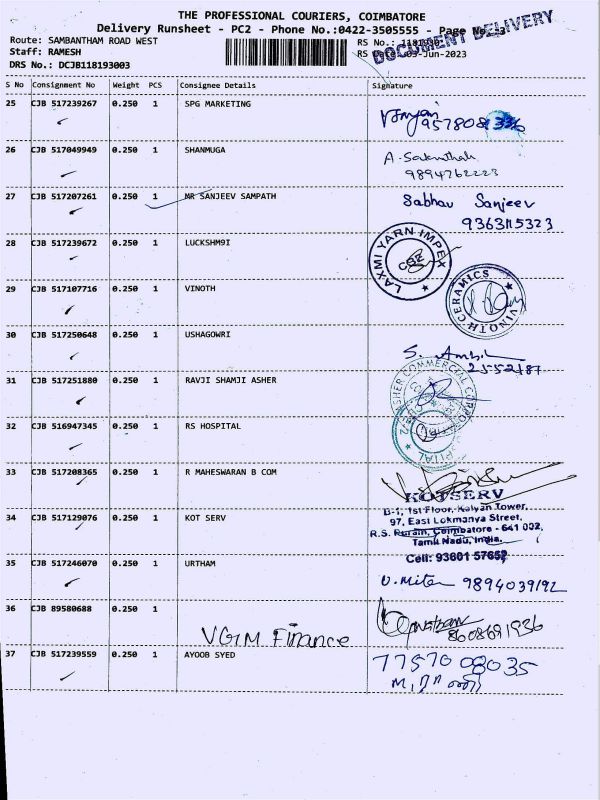 THE PROFESSIONAL COURIERS, COIMBATORE
Delivery Runsheet - PC2 - Phone No.:0422-3505555 - Page No. 3
DOCUMENT DELIVERY
Route: SAMBANTHAM ROAD WEST
RS No.:
Staff: RAMESH
-Jun-2023
DRS No.: DCJB118193003
S No Consignment No Weight PCS Consignee Details Signature
25 CJB 517239267 0.250 1 SPG MARKETING
26 CJB 517049949 0.250 1 SHANMUGA
9894762223
27 CJB 517207261 0.250 1 MR SANJEEV SAMPATH Sanjeev
28 CJB 517239672 0.250 1 LUCKSHM9I
LAXMI YARN IMPEX
CBE
29 CJB 517107716 0.250 1 VINOTH
VINOTH CERAMICS
30 CJB 517250648 0.250 1 USHAGOWRI
S.
2552187
31 CJB 517251880 0.250 1 RAVJI SHAMJI ASHER
32 CJB 516947345 0.250 1 RS HOSPITAL
33 CJB 517208365 0.250 1 R MAHESWARAN B COM
34 CJB 517129076 0.250 1 KOT SERV
KOTSERV
B-1, 1st Floor, Kalyan Tower,
97, East Lokmanya Street,
R.S. Puram, Coimbatore - 641 002,
Tamil Nadu, India.
Cell: 93601 57652
35 CJB 517246070 0.250 1 URTHAM
9894039192
36 CJB 89580688 0.250 1
VGM Finance
8608691936
37 CJB 517239559 0.250 1 AYOOB SYED